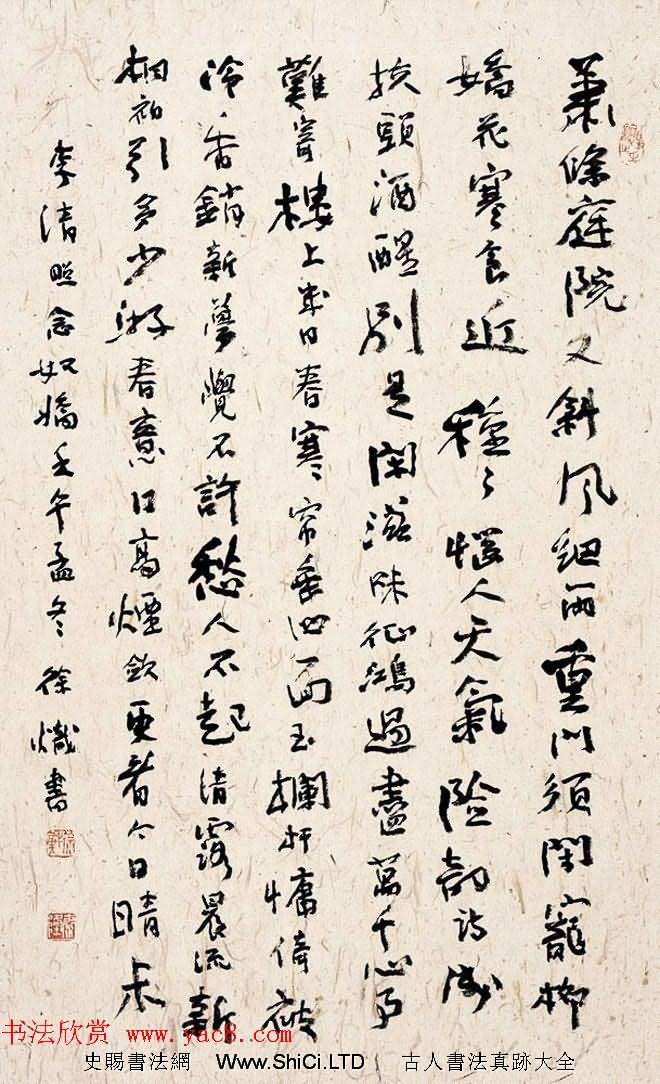 蕭條庭院又斜風細雨重門須閉寵柳
嬌花寒食近種種惱人天氣險韵詩成
扶頭酒醒別是閑滋味征鴻過盡萬千心事
難寄樓上幾日春寒帘垂四面玉欄杆慵倚被
冷香銷新夢覺不許愁人不起清露晨流新
桐初引多少游春意日高煙斂更看今日晴未
李清照念奴嬌壬午孟冬徐熾書
书法欣赏 www.yac8.com
史賜書法網 Www.ShiCi.LTD 古人書法真跡大全